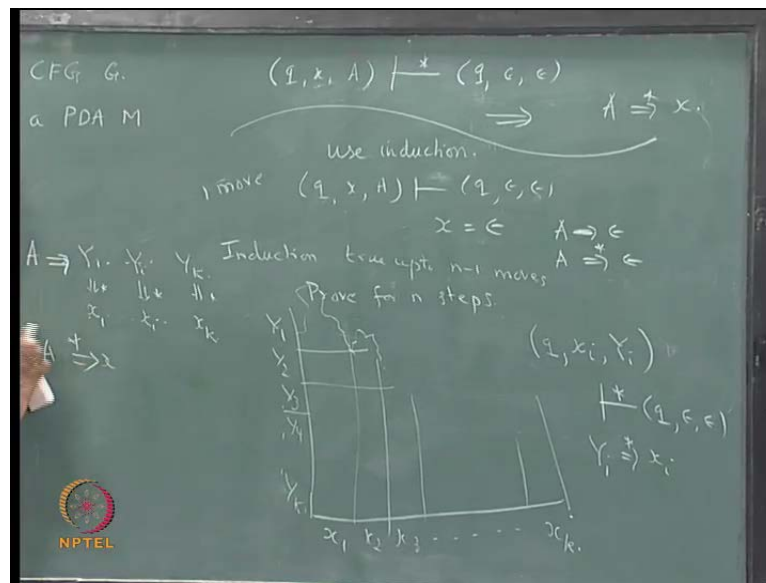 CFG G.
(q, x, A) ⊢* (q, ε, ε)
⟹ A ⇒* x.
a PDA M
use induction.
1 move (q, x, A) ⊢ (q, ε, ε)
x = ε A → ε
A ⇒* ε
A ⇒ Y1. Yi. Yk.
⇓* ⇓* ⇓*
xi xi. xk
A ⇒* x
Induction true upto n-1 moves
Prove for n steps.
Y1
Y2
Y3
Y4
Yk
x1 x2 x3 ...... xk.
(q, xi, Yi)
⊢* (q, ε, ε)
Yi ⇒* xi
NPTEL